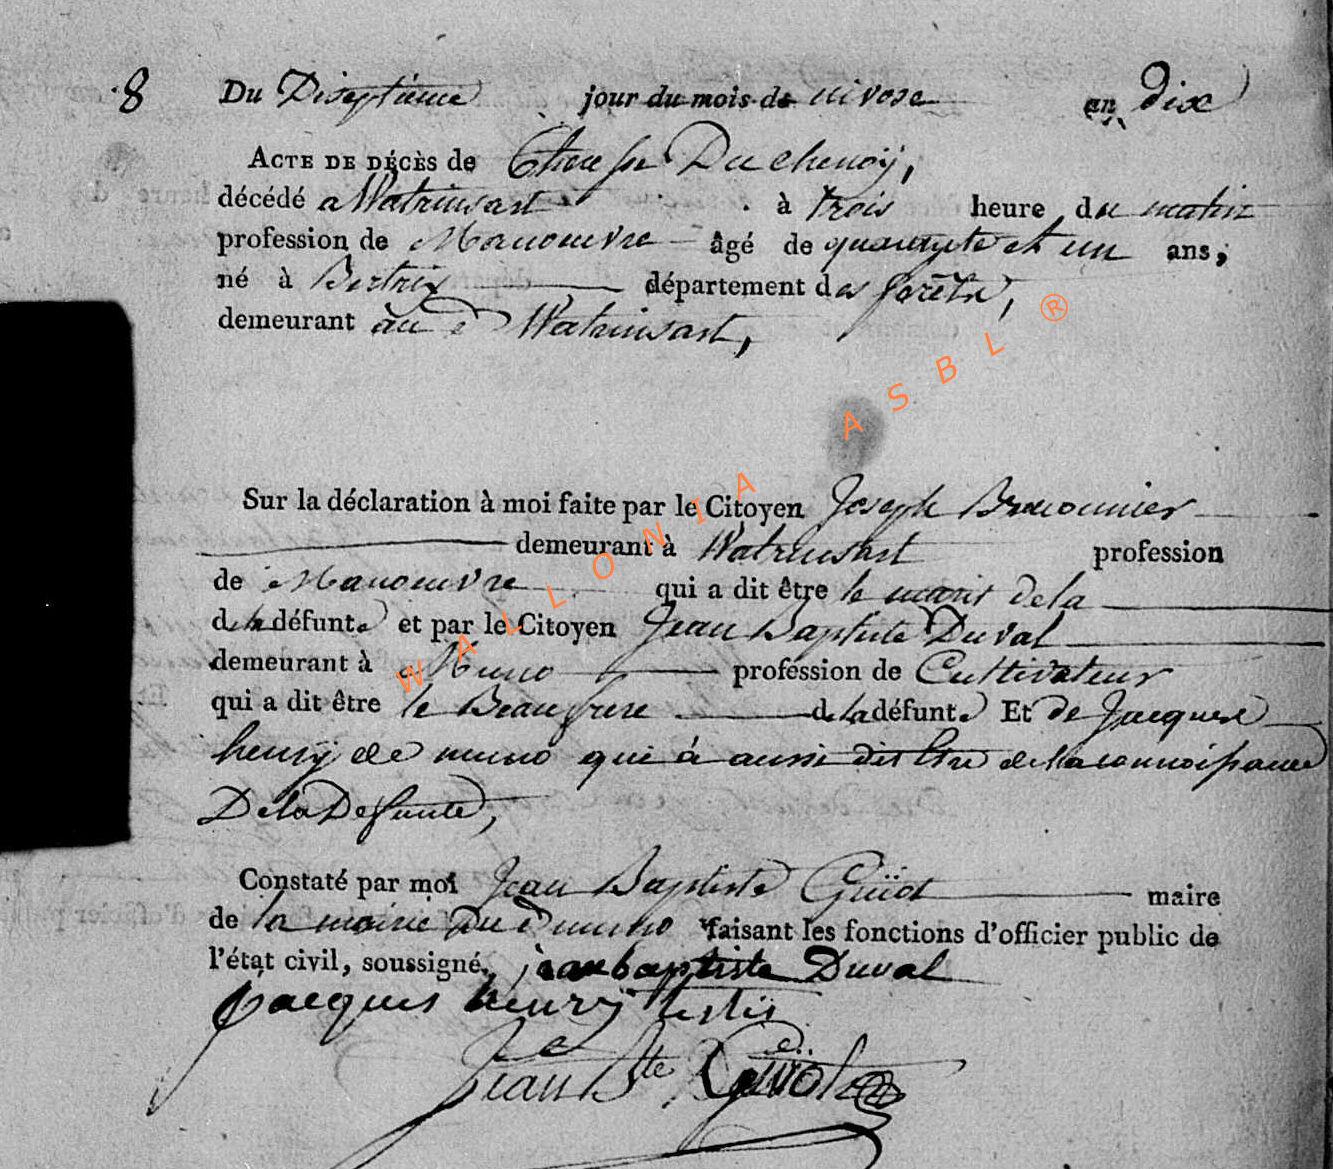 8 Du Diseptieme jour du mois de nivose an dix
ACTE DE DÉCÈS de Theresse Duchenoÿ,
décédé a Watrinsart à trois heure du matin
profession de Manouvre âgé de quarante et un ans,
né à Bertrix département des forêts,
demeurant au d Watrinsart,
Sur la déclaration à moi faite par le Citoyen Joseph
demeurant à Watrinsart profession
de Manouvre qui a dit être le marit dela
de la défunte et par le Citoyen Jean Baptiste Duval
demeurant à Muno profession de Cultivateur
qui a dit être le Beaufrere de la défunte Et de Jacques
henrÿ de muno qui à aussi dit Etre de la connoissance
De la Defunte,
Constaté par moi Jean Baptiste Guïot maire
de la mairie Du d muno faisant les fonctions d'officier public de
l'état civil, soussigné. jean baptiste Duval
Jacques henrÿ testis
Jean Bte Guïot
WALLONIA ASBL ®